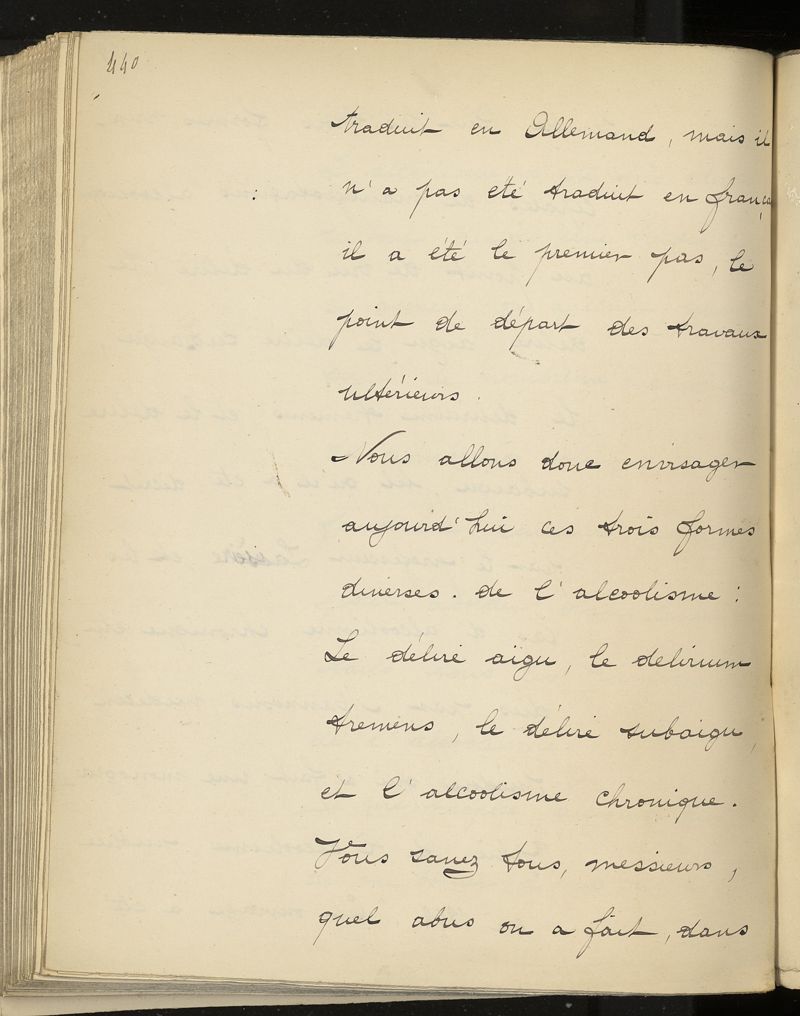 440
traduit en Allemand, mais il
n'a pas été traduit en françai
il a été le premier pas, le
point de départ des travaux
ultérieurs.
Nous allons donc envisager
aujourd'hui ces trois formes
diverses. de l'alcoolisme :
Le délire aigu, le delirium
tremens, le délire subaigu,
et l'alcoolisme chronique.
Vous savez tous, messieurs,
quel abus on a fait, dans